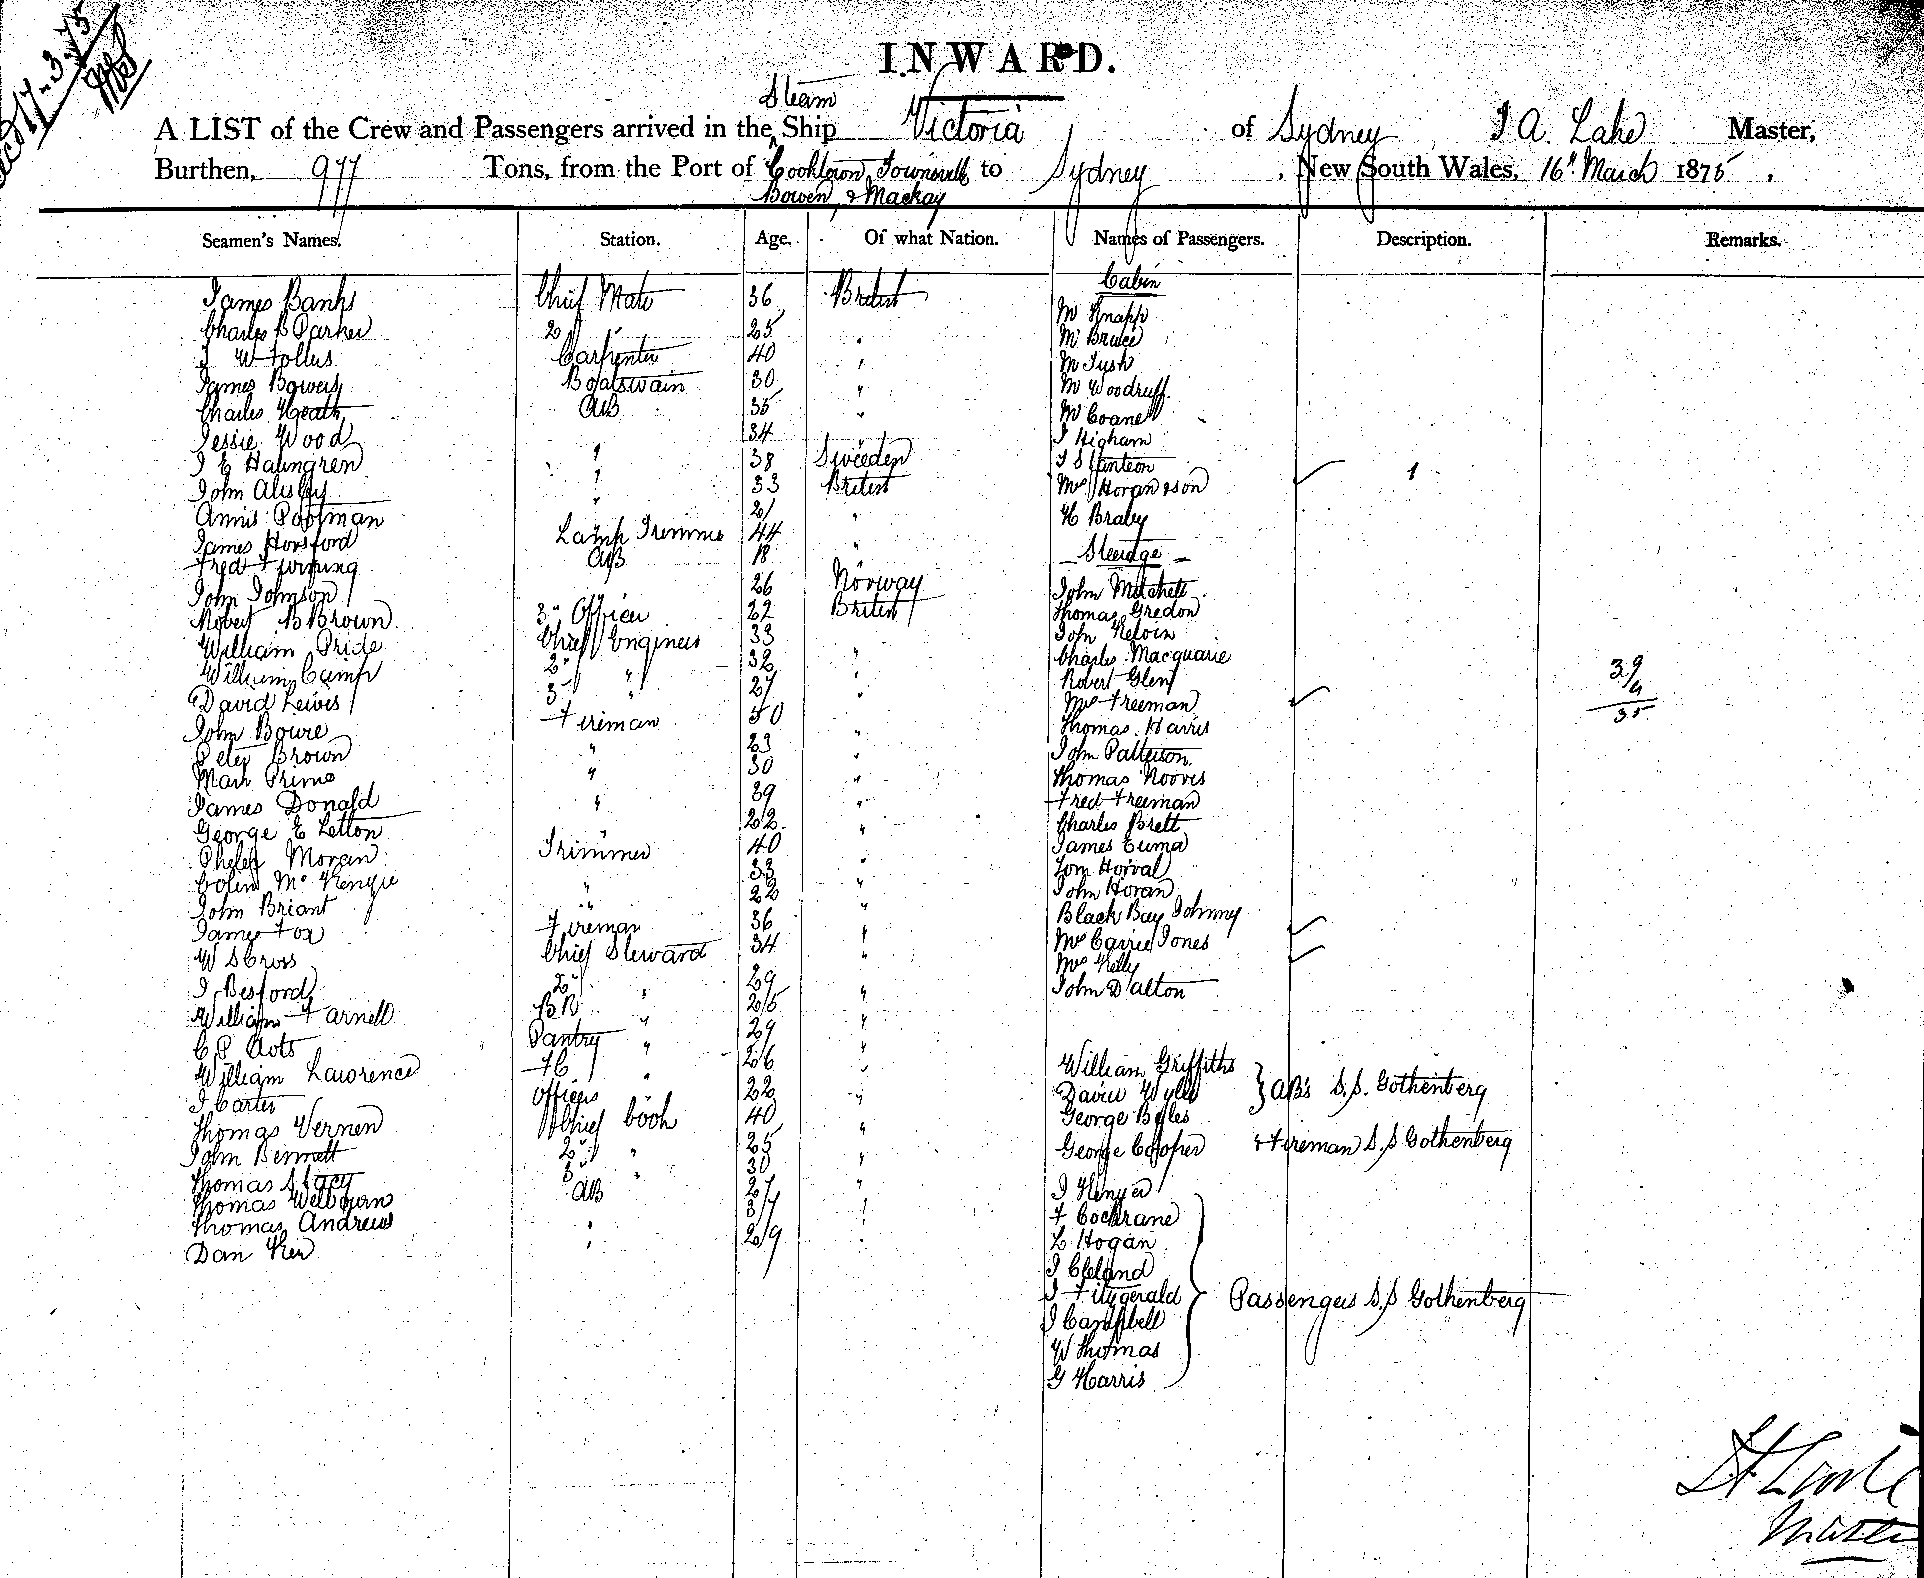 17-3-75
INWARD.
Steam
A LIST of the Crew and Passengers arrived in the Ship Victoria of Sydney J A. Lake Master,
Burthen, 977 Tons, from the Port of Cooktown, Townsville to Sydney, New South Wales, 16th March 1875.
Bowen, & Mackay
Seamen's Names. Station. Age. Of what Nation. Names of Passengers. Description. Remarks.
Cabin
James Banks Chief Mate 36 British Mr Knapp
Charles B Parker 2d " 25 " Mr Bruce
J W Follus Carpenter 40 " Mr Tush
James Bowers Boatswain 30 " Mr Woodruff
Charles Heath AB 35 " Mr Coane
Jessie Wood 34 J Higham
J E Halmgren " 38 Sweeden J S
John " 33 British Mrs Horan & son 1
Annis Poolman " 21 " H Braby
James Horsford Lamp Trimmer 44 " Steerage
Fred AB 18
John Johnson 26 Norway John Mitchell
Robert B Brown 3rd Officer 22 British Thomas Gredon
William Pride Chief Engineer 33 John Kelvin
William Camp 2d " 32 " Charles Macquarie
David Lewis 3d " 27 " Robert Glen 39
John Bowre Fireman 50 Mrs Freeman 4
Peter Brown " 23 " Thomas Harris 35
Mark Prime " 30 " John Patterson
James Donald " 39 " Thomas Nooves
George E Letton " 22 " Fred Freeman
Phelix Moran Trimmer 40 " Charles Brett
Colin McKenzie " 33 " James Euma
John Briant " 22 " Tom Horval
James Fox Fireman 36 " John Horan
W S Cross Chief Steward 34 " Black Bay Johnny
J Besford 2d " 29 " Mrs Carrie Jones
William Farnell BR " 25 " Mrs Kelly
C P Aots Pantry " 29 " John Dalton
William Lawrence FC " 26 "
J Carter Officers 22 "
Thomas Vernen Chief Cook 40 "
John Bennett 2d " 25 "
Thomas Stacy 3d " 30 "
Thomas Welbourn AB 27 "
Thomas Andrews " 37 "
Dan Ker " 29 "
William Griffiths
David Wylie } AB's S.S. Gothenberg
George Byles
George Cooper & Fireman S.S Gothenberg
J
F Cockrane
L Hogan
J Cleland
J Fitzgerald } Passengers S.S Gothenberg
J Campbell
W Thomas
G Harris
Master